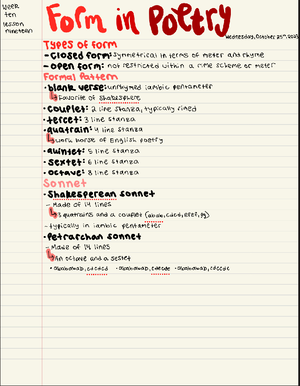 week
ten
lesson
nineteen
Form in Poetry
Wednesday, October 25th, 2023
Types of form
- closed form: symmetrical in terms of meter and rhyme
- open form: not restricted within a rime scheme or meter
Formal Pattern
• blank verse: unrhymed iambic pentameter
Favorite of Shakesphere
• couplet: 2 line stanza, typically rimed
• tercet: 3 line stanza
• quatrain: 4 line stanza
work horse of English poetry
• quintet: 5 line stanza
• sextet: 6 line stanza
• octave: 8 line stanza
Sonnet
• Shakesperean sonnet
- Made of 14 lines
3 quatrains and a couplet (abab, cdcd, efef, gg)
- typically in iambic pentameter
• Petrarchan sonnet
- Made of 14 lines
An octave and a sestet